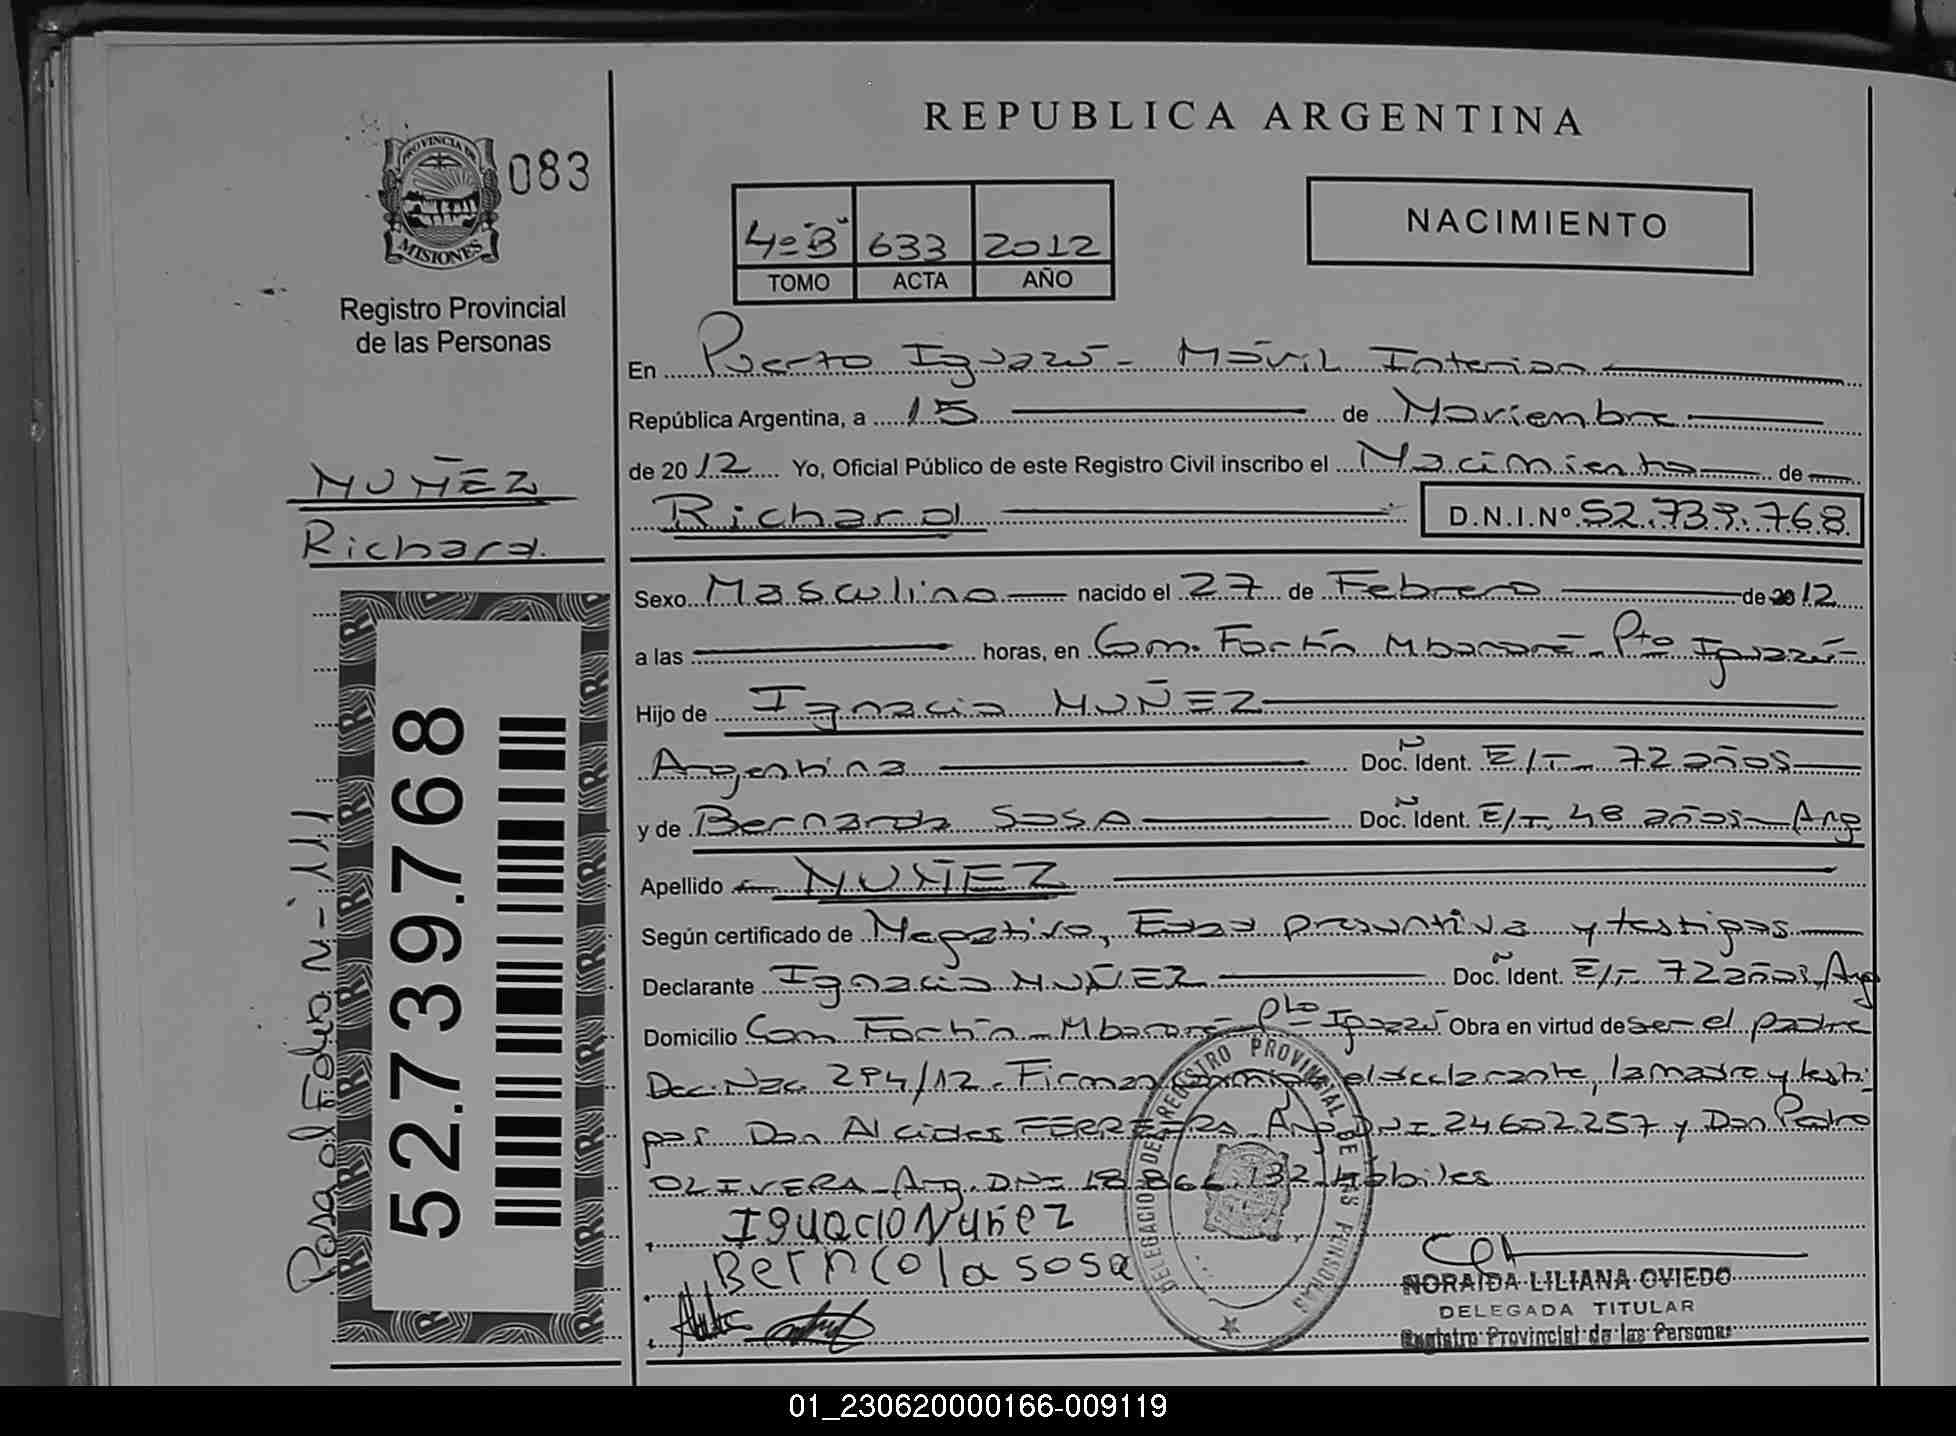 REPUBLICA ARGENTINA
PROVINCIA DE
MISIONES
083
Registro Provincial
de las Personas
4º "B" 633 2012
TOMO ACTA AÑO
NACIMIENTO
En Puerto Iguazú - Móvil Interior
República Argentina, a 15 de Noviembre
de 2012 Yo, Oficial Público de este Registro Civil inscribo el Nacimiento de
Richard D.N.I.Nº 52.739.768
NUÑEZ
Richard
Sexo Masculino nacido el 27 de Febrero de 2012
a las horas, en Com. Fortín Mbororé - Pto Iguazú
Hijo de Ignacio NUÑEZ
Argentina Doc. Ident. E/T - 72 años
y de Bernarda SOSA Doc. Ident. E/T. 48 años - Arg
Apellido NUÑEZ
Según certificado de Negativo, Edad presuntiva y testigos
Declarante Ignacio NUÑEZ Doc. Ident. E/T - 72 años, Arg
Domicilio Com Fortín - Mbororé - Pto Iguazú Obra en virtud de ser el padre
Dec. Nac. 294/12. Firman el declarante, la madre y testi
gos Don Alcides FERREIRA Arg DNI 24.602.257 y Don Pedro
OLIVERA - Arg. DNI 18.866.132 - Hábiles
Ignacio Nuñez
Berncola sosa
NORAIDA LILIANA OVIEDO
DELEGADA TITULAR
Registro Provincial de las Personas
DELEGACION DEL REGISTRO PROVINCIAL DE LAS PERSONAS
52.739.768
Pasa al Folio N- 111
01_230620000166-009119